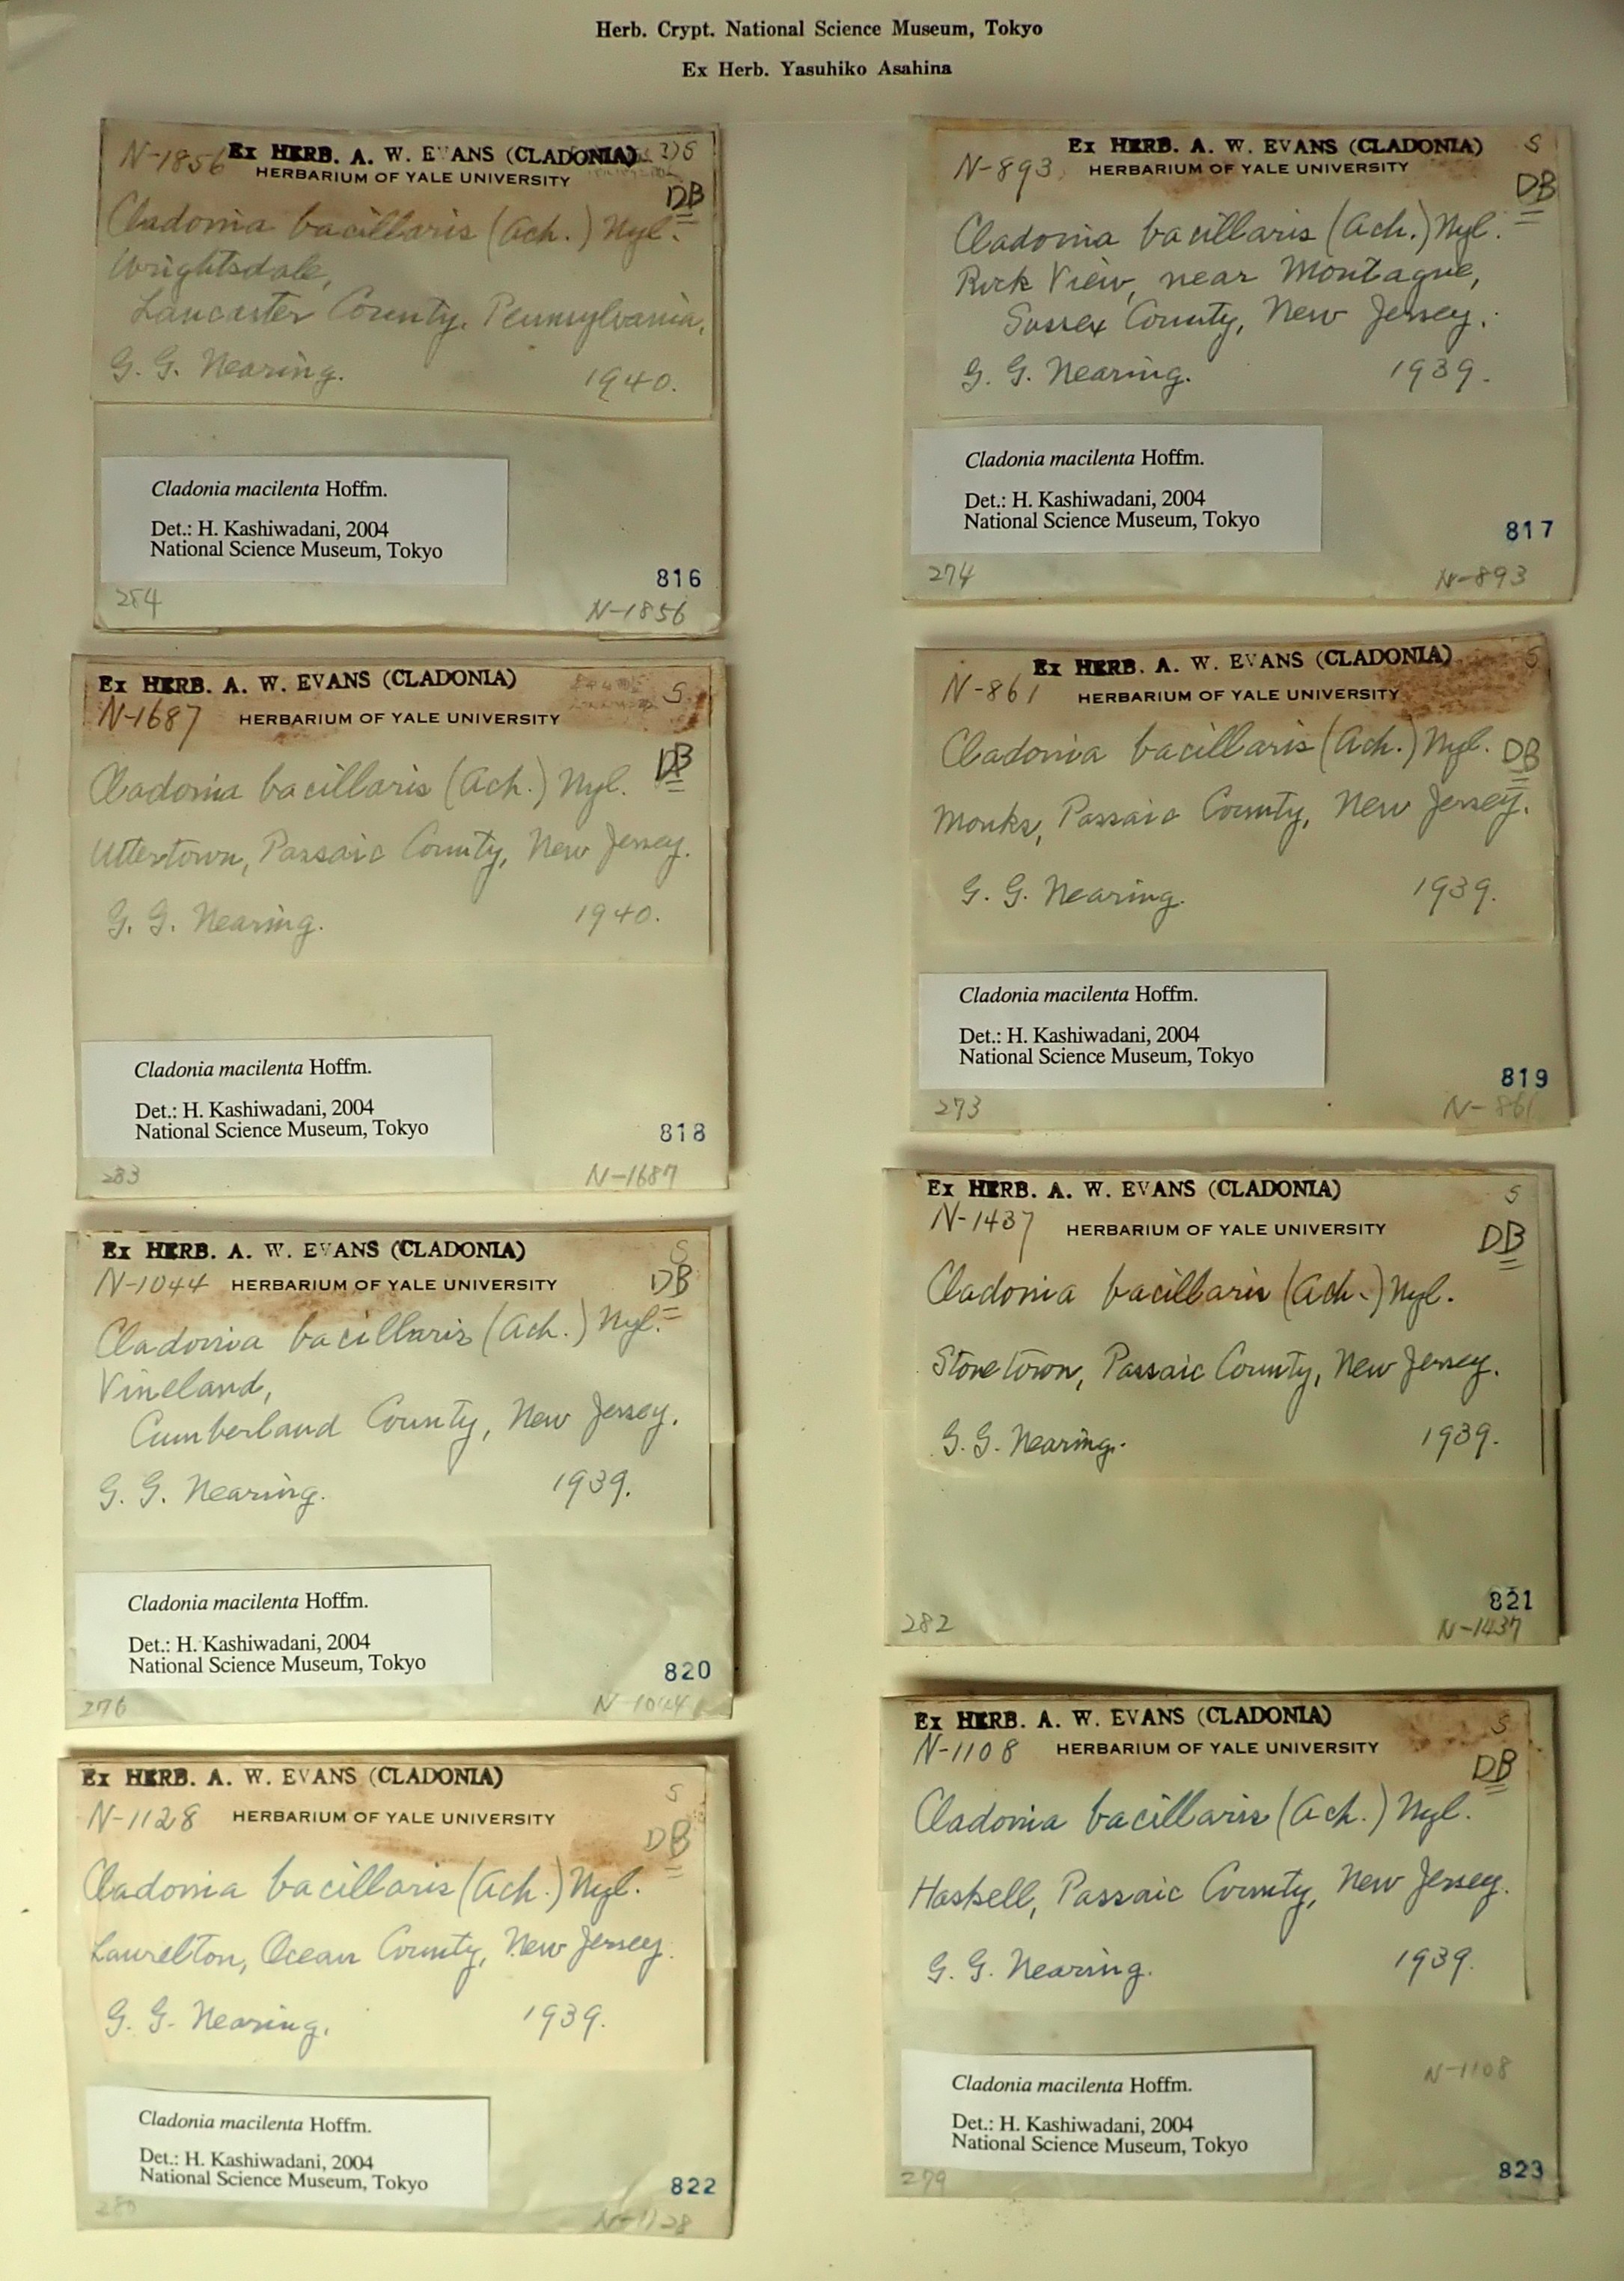 Herb. Crypt. National Science Museum, Tokyo
Ex Herb. Yasuhiko Asahina
N-1856 Ex HERB. A. W. EVANS (CLADONIA) S
HERBARIUM OF YALE UNIVERSITY
DB
Cladonia bacillaris (Ach.) Nyl.
Wrightsdale,
Lancaster County, Pennsylvania,
G. G. Nearing. 1940.
Cladonia macilenta Hoffm.
Det.: H. Kashiwadani, 2004
National Science Museum, Tokyo
816
254
N-1856
Ex HERB. A. W. EVANS (CLADONIA) S
N-893 HERBARIUM OF YALE UNIVERSITY
DB
Cladonia bacillaris (Ach.) Nyl.
Rock View, near Montague,
Sussex County, New Jersey.
G. G. Nearing. 1939.
Cladonia macilenta Hoffm.
Det.: H. Kashiwadani, 2004
National Science Museum, Tokyo
817
274 N-893
Ex HERB. A. W. EVANS (CLADONIA) S
N-1687 HERBARIUM OF YALE UNIVERSITY
DB
Cladonia bacillaris (Ach.) Nyl.
Uttertown, Passaic County, New Jersey.
G. G. Nearing. 1940.
Cladonia macilenta Hoffm.
Det.: H. Kashiwadani, 2004
National Science Museum, Tokyo
818
283 N-1687
Ex HERB. A. W. EVANS (CLADONIA) S
N-861 HERBARIUM OF YALE UNIVERSITY
Cladonia bacillaris (Ach.) Nyl. DB
Monks, Passaic County, New Jersey.
G. G. Nearing. 1939.
Cladonia macilenta Hoffm.
Det.: H. Kashiwadani, 2004
National Science Museum, Tokyo
819
273 N-861
Ex HERB. A. W. EVANS (CLADONIA) S
N-1044 HERBARIUM OF YALE UNIVERSITY DB
Cladonia bacillaris (Ach.) Nyl.
Vineland,
Cumberland County, New Jersey.
G. G. Nearing. 1939.
Cladonia macilenta Hoffm.
Det.: H. Kashiwadani, 2004
National Science Museum, Tokyo
820
276 N-1044
Ex HERB. A. W. EVANS (CLADONIA) S
N-1437 HERBARIUM OF YALE UNIVERSITY
DB
Cladonia bacillaris (Ach.) Nyl.
Stonetown, Passaic County, New Jersey.
G. G. Nearing. 1939.
821
282 N-1437
Ex HERB. A. W. EVANS (CLADONIA) S
N-1128 HERBARIUM OF YALE UNIVERSITY
DB
Cladonia bacillaris (Ach.) Nyl.
Laurelton, Ocean County, New Jersey.
G. G. Nearing. 1939.
Cladonia macilenta Hoffm.
Det.: H. Kashiwadani, 2004
National Science Museum, Tokyo
822
280 N-1128
Ex HERB. A. W. EVANS (CLADONIA) S
N-1108 HERBARIUM OF YALE UNIVERSITY
DB
Cladonia bacillaris (Ach.) Nyl.
Haskell, Passaic County, New Jersey.
G. G. Nearing. 1939.
N-1108
Cladonia macilenta Hoffm.
Det.: H. Kashiwadani, 2004
National Science Museum, Tokyo
823
279